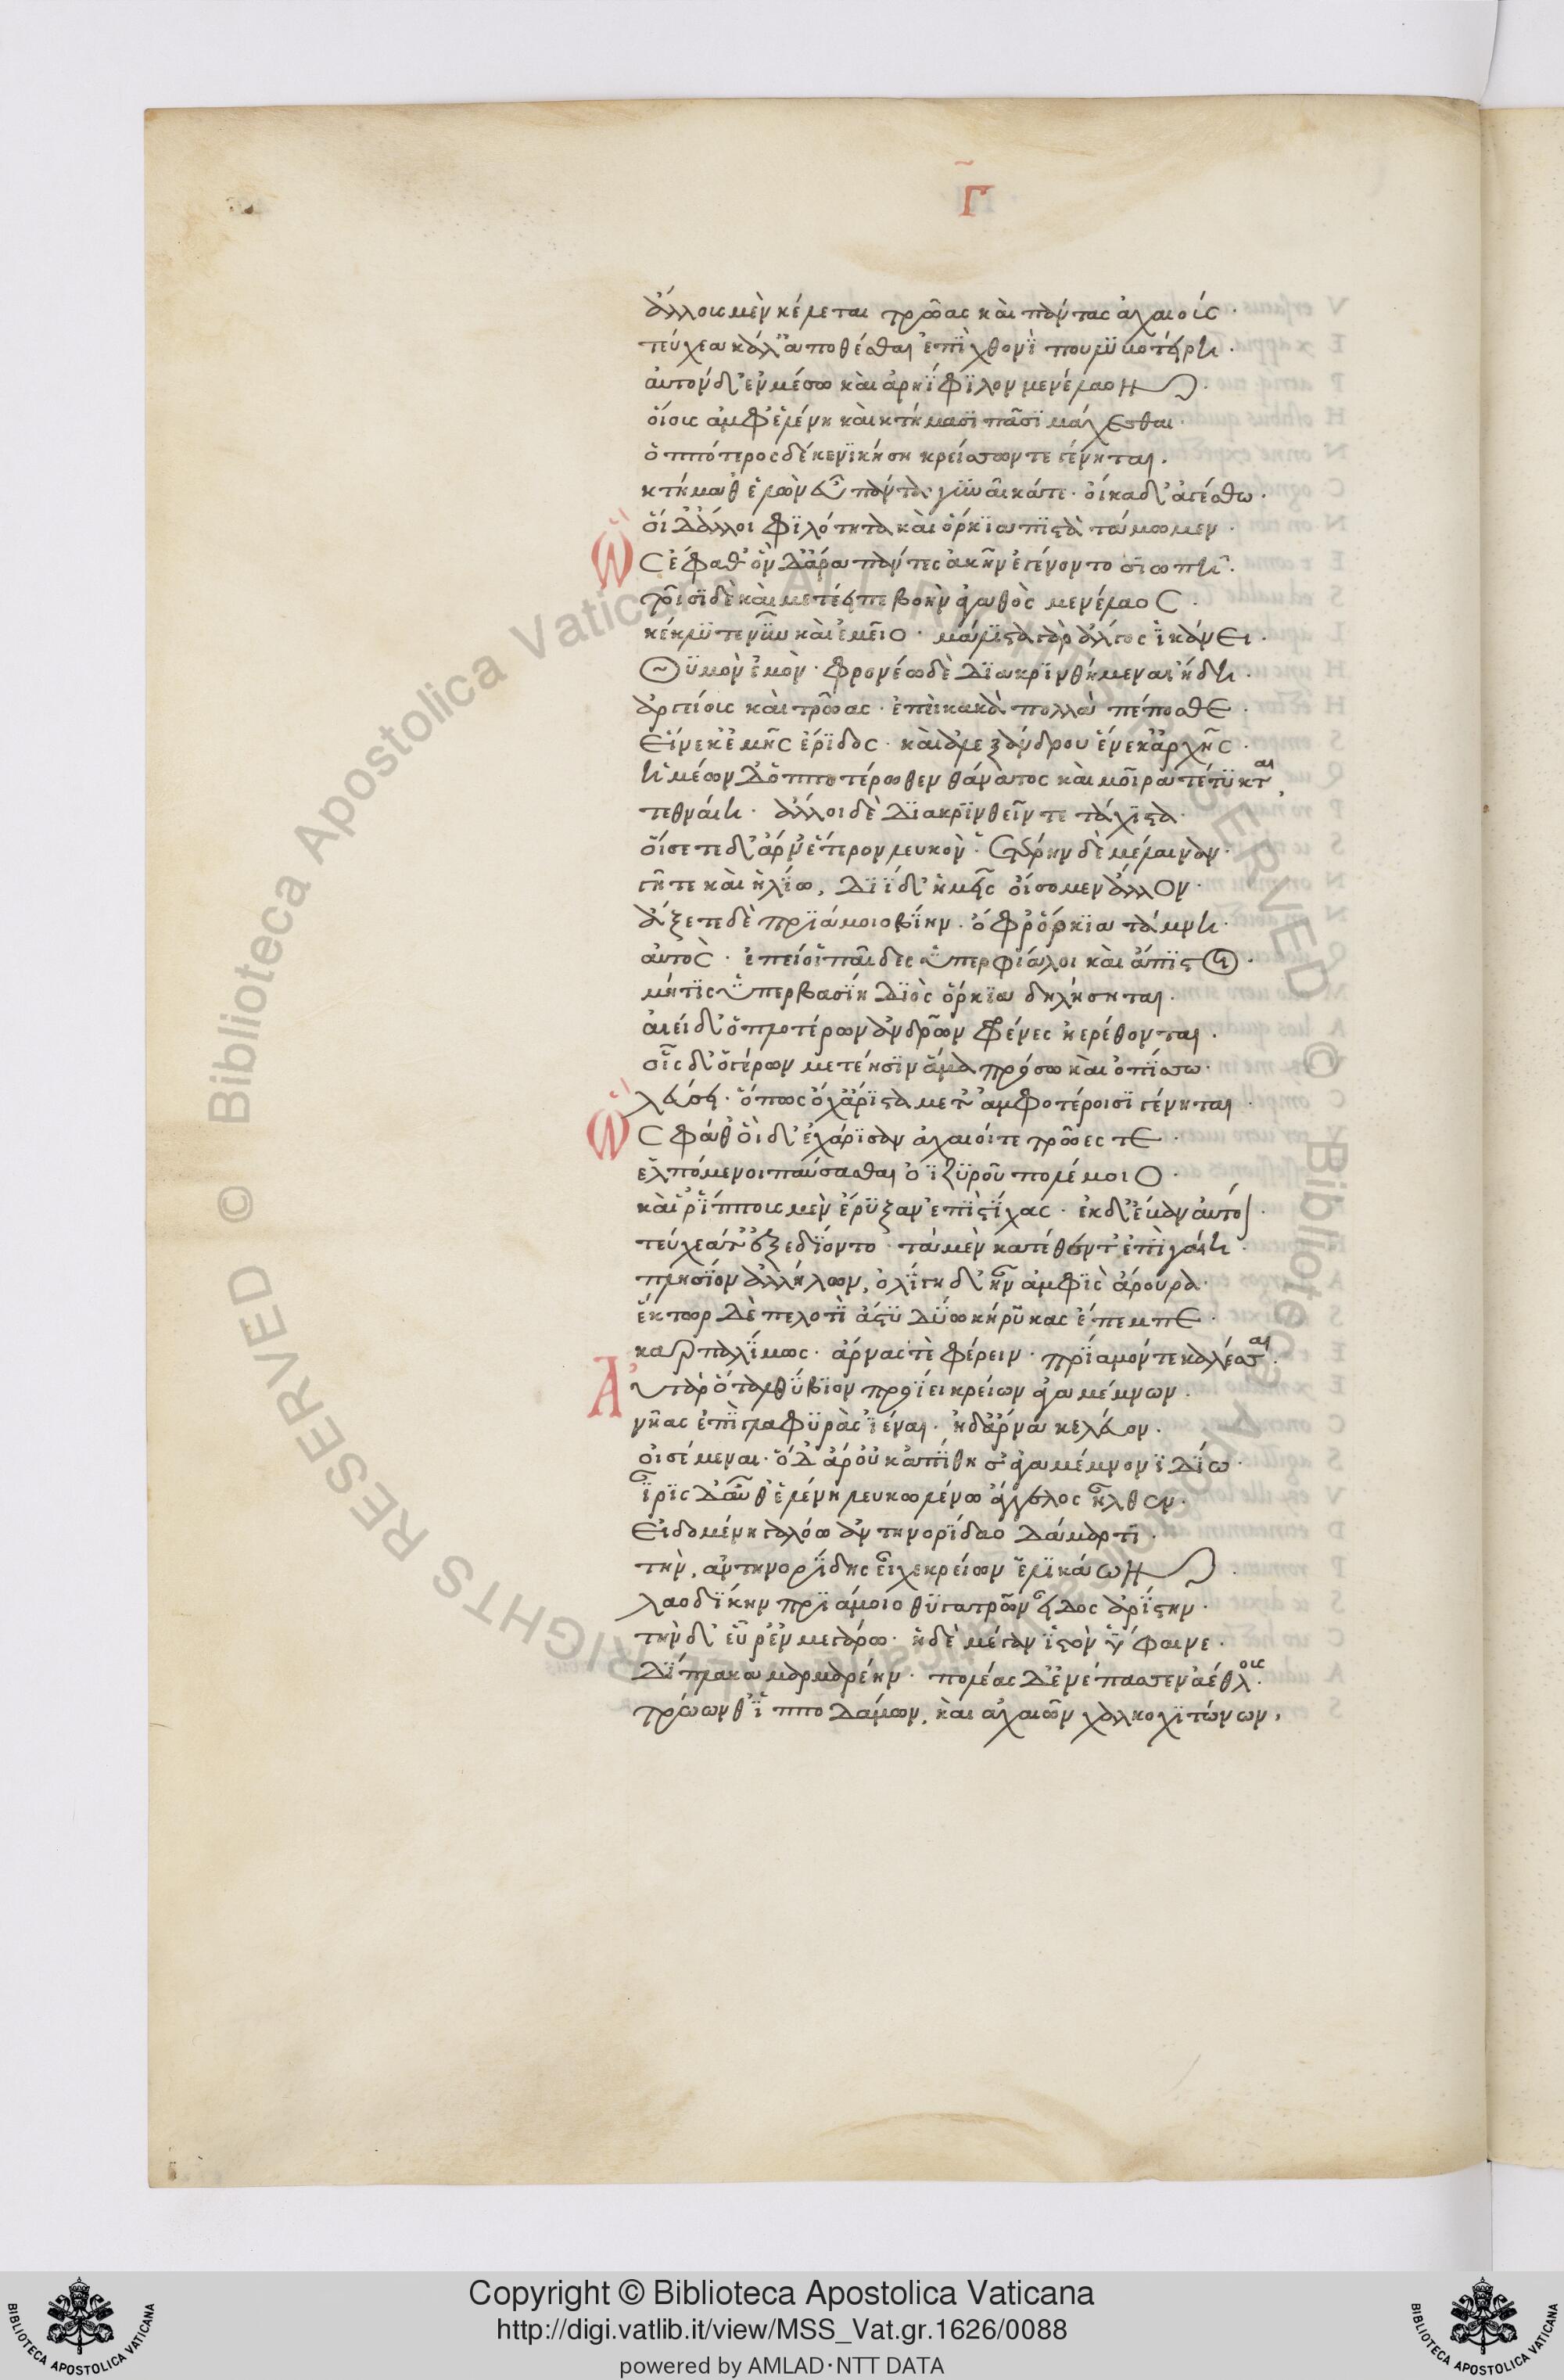 Γ
ἄλλους μὲν κέλεται τρῶας καὶ πάντας ἀχαιούς·
τεύχεα κάλ' ἀποθέσθαι ἐπὶ χθονὶ πουλυβοτείρη·
αὐτὸν δ' ἐν μέσω καὶ ἀρηΐφιλον μενέλαον·
οἴους ἀμφ' ἑλένη καὶ κτήμασι πᾶσι μάχεσθαι·
ὁππότερος δέ κε νικήση κρείσσων τε γένηται.
κτήμαθ' ἑλὼν εὖ πάντα γυναῖκά τε οἴκαδ' ἀγέσθω·
οἱ δ' ἄλλοι φιλότητα καὶ ὅρκια πιστὰ τάμωμεν·
Ὣς ἔφαθ' οἳ δ' ἄρα πάντες ἀκὴν ἐγένοντο σιωπῆ·
τοῖσι δὲ καὶ μετέειπε βοὴν ἀγαθὸς μενέλαος·
κέκλυτε νῦν καὶ ἐμεῖο· μάλιστα γὰρ ἄλγος ἱκάνει·
θυμὸν ἐμὸν· φρονέω δὲ διακρινθήμεναι ἤδη·
ἀργείους καὶ τρῶας· ἐπεὶ κακὰ πολλὰ πέποσθε·
εἵνεκ' ἐμῆς ἔριδος· καὶ ἀλεξάνδρου ἕνεκ' ἀρχῆς·
ἡμέων δ' ὁπποτέρωθεν θάνατος καὶ μοῖρα τέτυκται,
τεθναίη· ἄλλοι δὲ διακρινθεῖντε τάχιστα·
οἴσετε δ' ἄρν' ἕτερον λευκὸν· ἑτέρην δὲ μέλαιναν·
γῆ τε καὶ ἠλίω, διῒ δ' ἡμεῖς οἴσομεν ἄλλον·
ἄξετε δὲ πριάμοιο βίην· ὄφρ' ὅρκια τάμνη·
αὐτὸς· ἐπεί οἱ παῖδες ὑπερφίαλοι καὶ ἄπιστοι·
μήτις ὑπερβασίη διὸς ὅρκια δηλήσηται.
αἰεὶ δ' ὁπλοτέρων ἀνδρῶν φρένες ἠερέθονται.
οἷς δ' ὁ γέρων μετέησιν ἅμα πρόσω καὶ ὀπίσσω·
λεύσει· ὅπως ὄχ' ἄριστα μετ' ἀμφοτέροισι γένηται·
Ὣς φάθ' οἱ δ' ἐχάρισαν ἀχαιοί τε τρῶες τε·
ἐλπόμενοι παύσασθαι ὀϊζυροῦ πολέμοιο·
καί ῥ' ἵππους μὲν ἔρυξαν ἐπὶ στίχας· ἐκ δ' ἔβαν αὐτοί·
τεύχεά τ' ἐξεδύοντο· τὰ μὲν κατέθεντ' ἐπὶ γαίη·
πλησίον ἀλλήλων, ὀλίγη δ' ἦν ἀμφὶς ἄρουρα·
ἕκτωρ δὲ πελοτὶ ἄστυ δύω κήρυκας ἔπεμπε·
καρπαλίμως· ἄρνας τὲ φέρειν· πρίαμόν τε καλέσσαι·
Αὐτὰρ ὃ ταλθύβιον προΐει κρείων ἀγαμέμνων.
νῆας ἐπὶ γλαφυρὰς ἰέναι· ἠδ' ἄρνα κελευον.
οἰσέμεναι· ὃ δ' ἄρ' οὐκ ἀπίθησ' ἀγαμέμνονι δίω·
ἶρις δ' αὖθ' ἑλένη λευκωλένω ἄγγελος ἦλθεν·
εἰδομένη γαλόω ἀντηνορίδαο δάμαρτι·
τὴν, ἀντηνορίδης εἶχε κρείων ἑλικάων·
λαοδίκην πριάμοιο θυγατρῶν εἶδος ἀρίστην·
τὴν δ' εὗρ' ἐν μεγάρω· ἡ δὲ μέγαν ἱστὸν ὕφαινε·
δίπλακα μαρμαρέην· πολέας δ' ἐνέπασσεν ἀέθλους·
τρώων θ' ἱπποδάμων, καὶ ἀχαιῶν χαλκοχιτώνων,
© Biblioteca Apostolica Vaticana ALL RIGHTS RESERVED
Copyright © Biblioteca Apostolica Vaticana
http://digi.vatlib.it/view/MSS_Vat.gr.1626/0088
powered by AMLAD·NTT DATA
BIBLIOTECA APOSTOLICA VATICANA
BIBLIOTECA APOSTOLICA VATICANA